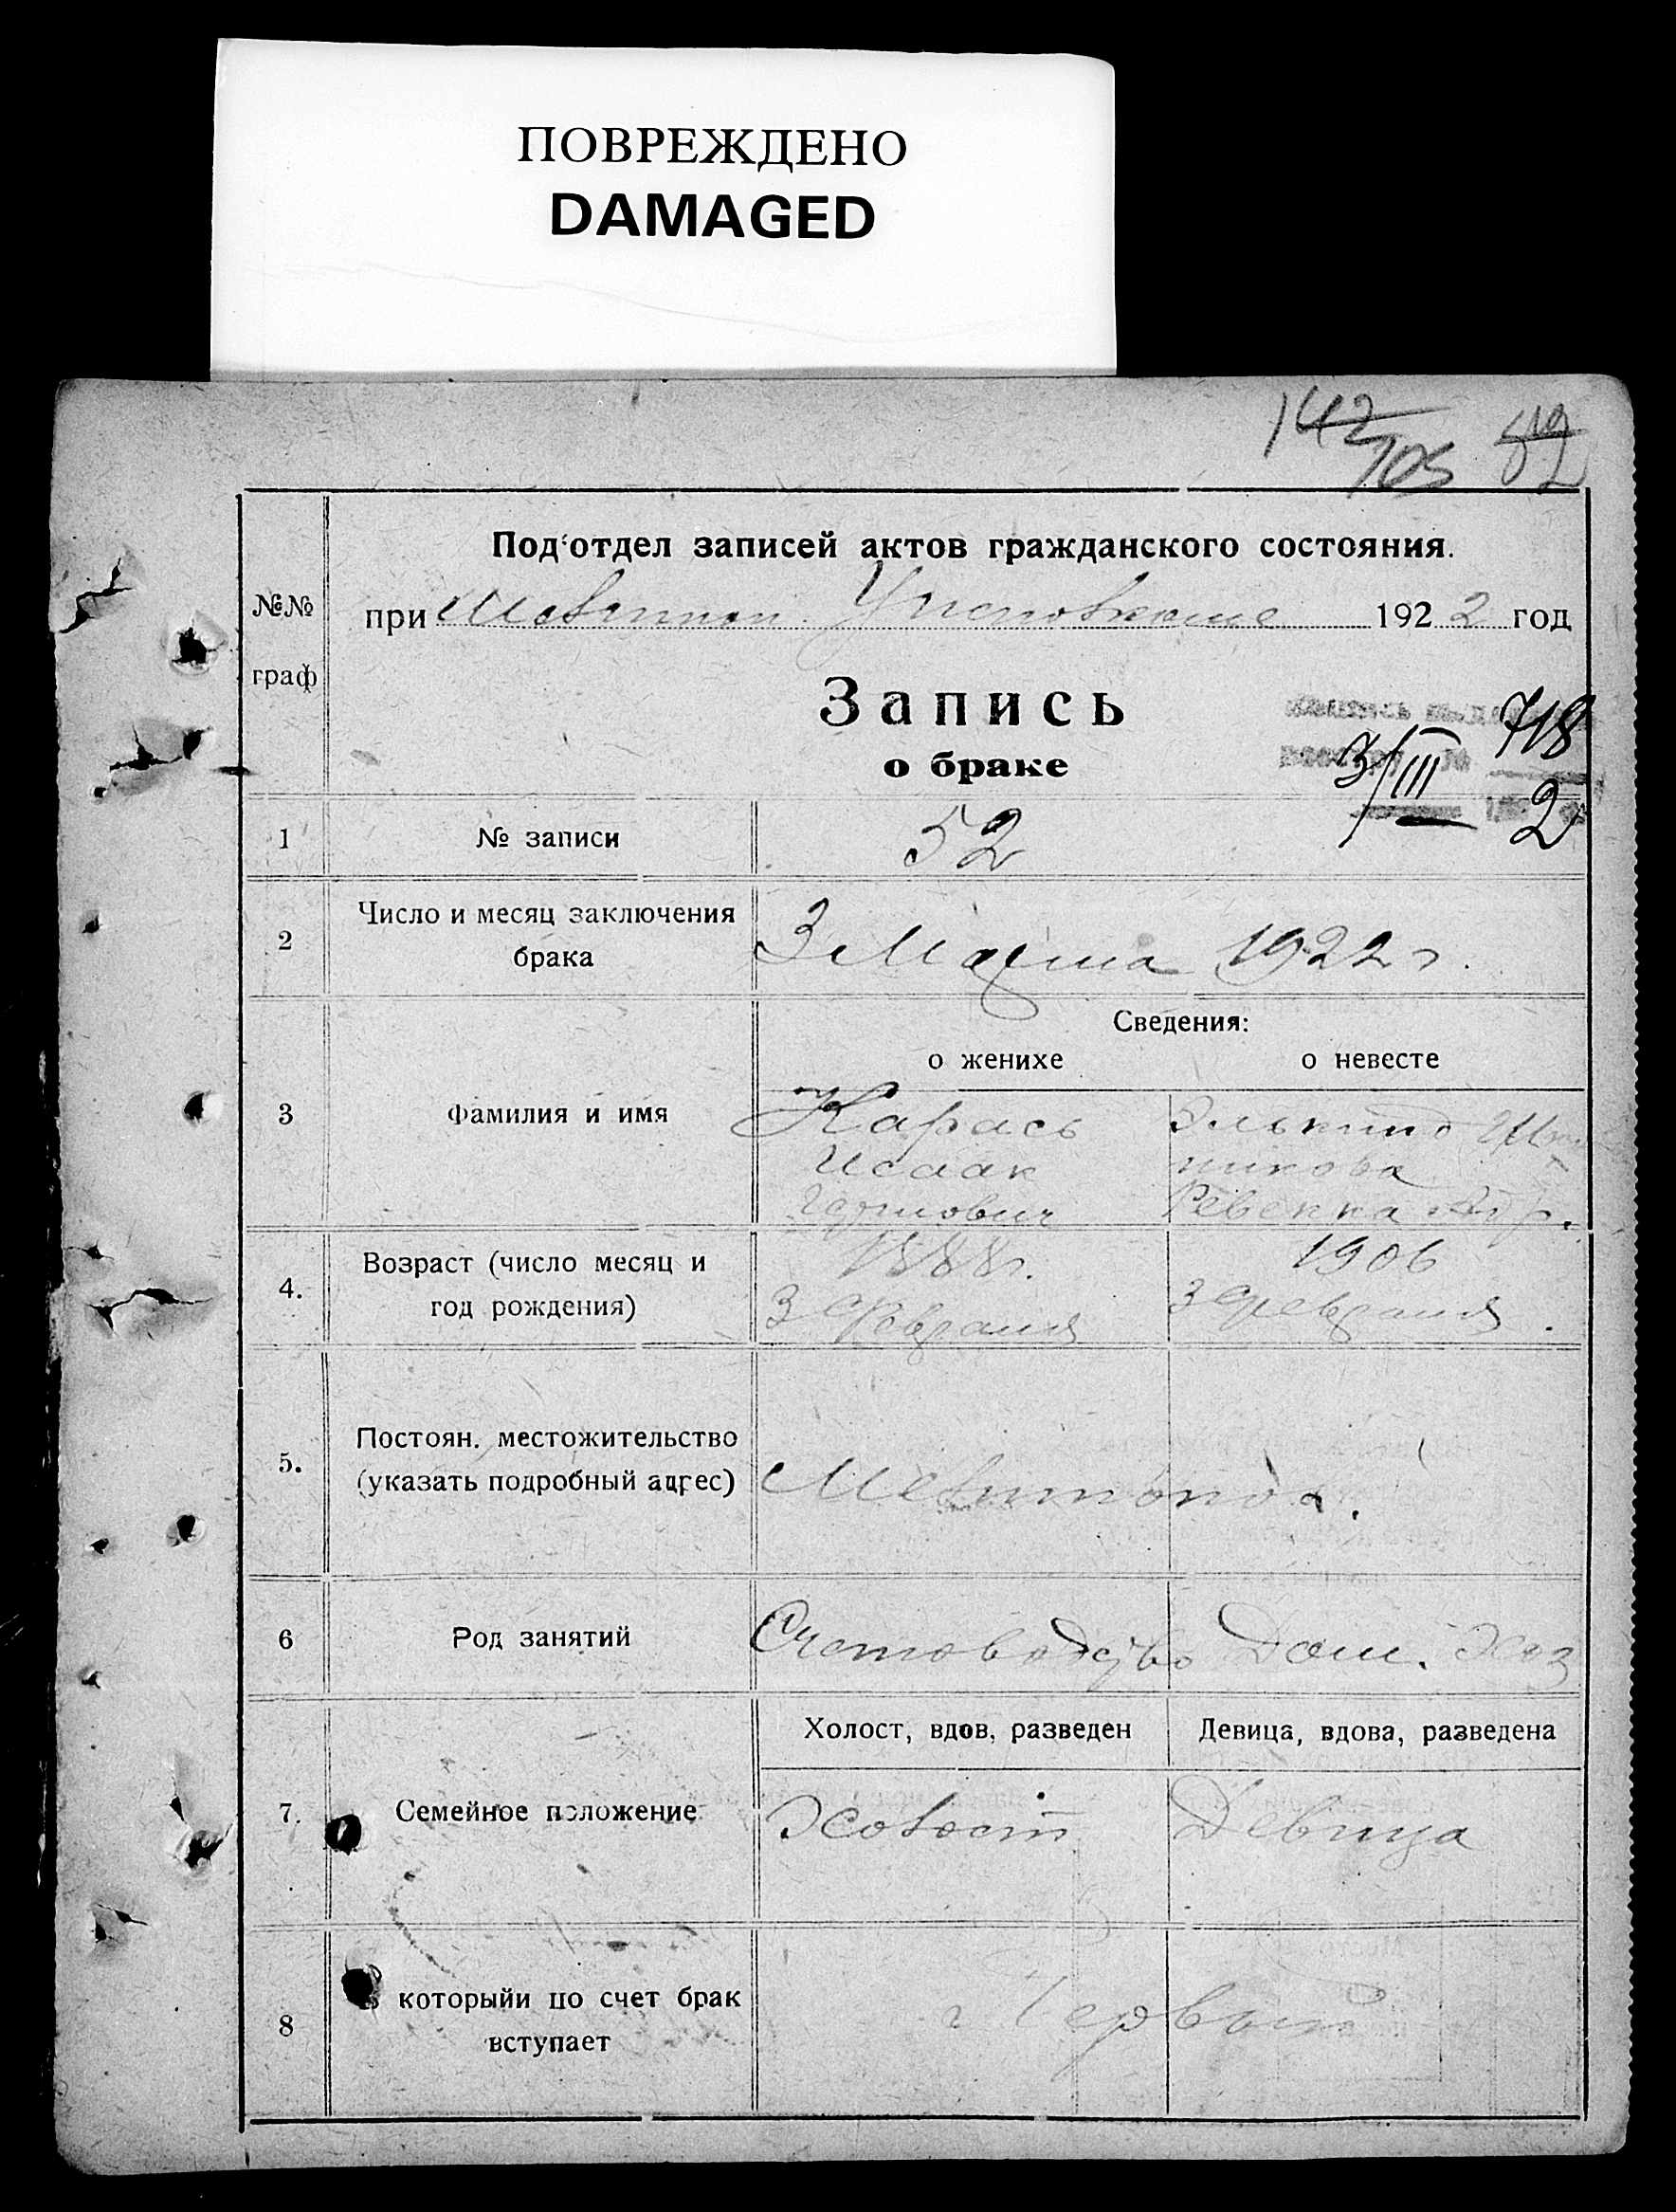 ПОВРЕЖДЕНО
DAMAGED
142
105
Под'отдел записей актов гражданского состояния.
№№
граф
при 192 2 год
Запись
о браке
718
3/III
2
1 № записи 52
2 Число и месяц заключения
брака
3 Марта 1922 г.
Сведения:
о женихе о невесте
3 Фамилия и имя
Карась Элькинд
Исаак
Ревекка
4. Возраст (число месяц и
год рождения)
1888 г. 1906
3 февраля 3 февраля.
5. Постоян. местожительство
(указать подробный адрес)
6 Род занятий Счетоводство Дом. Хоз
Холост, вдов, разведен Девица, вдова, разведена
7. Семейное положение Холост Девица
8 которыйи по счет брак
вступает
Первый